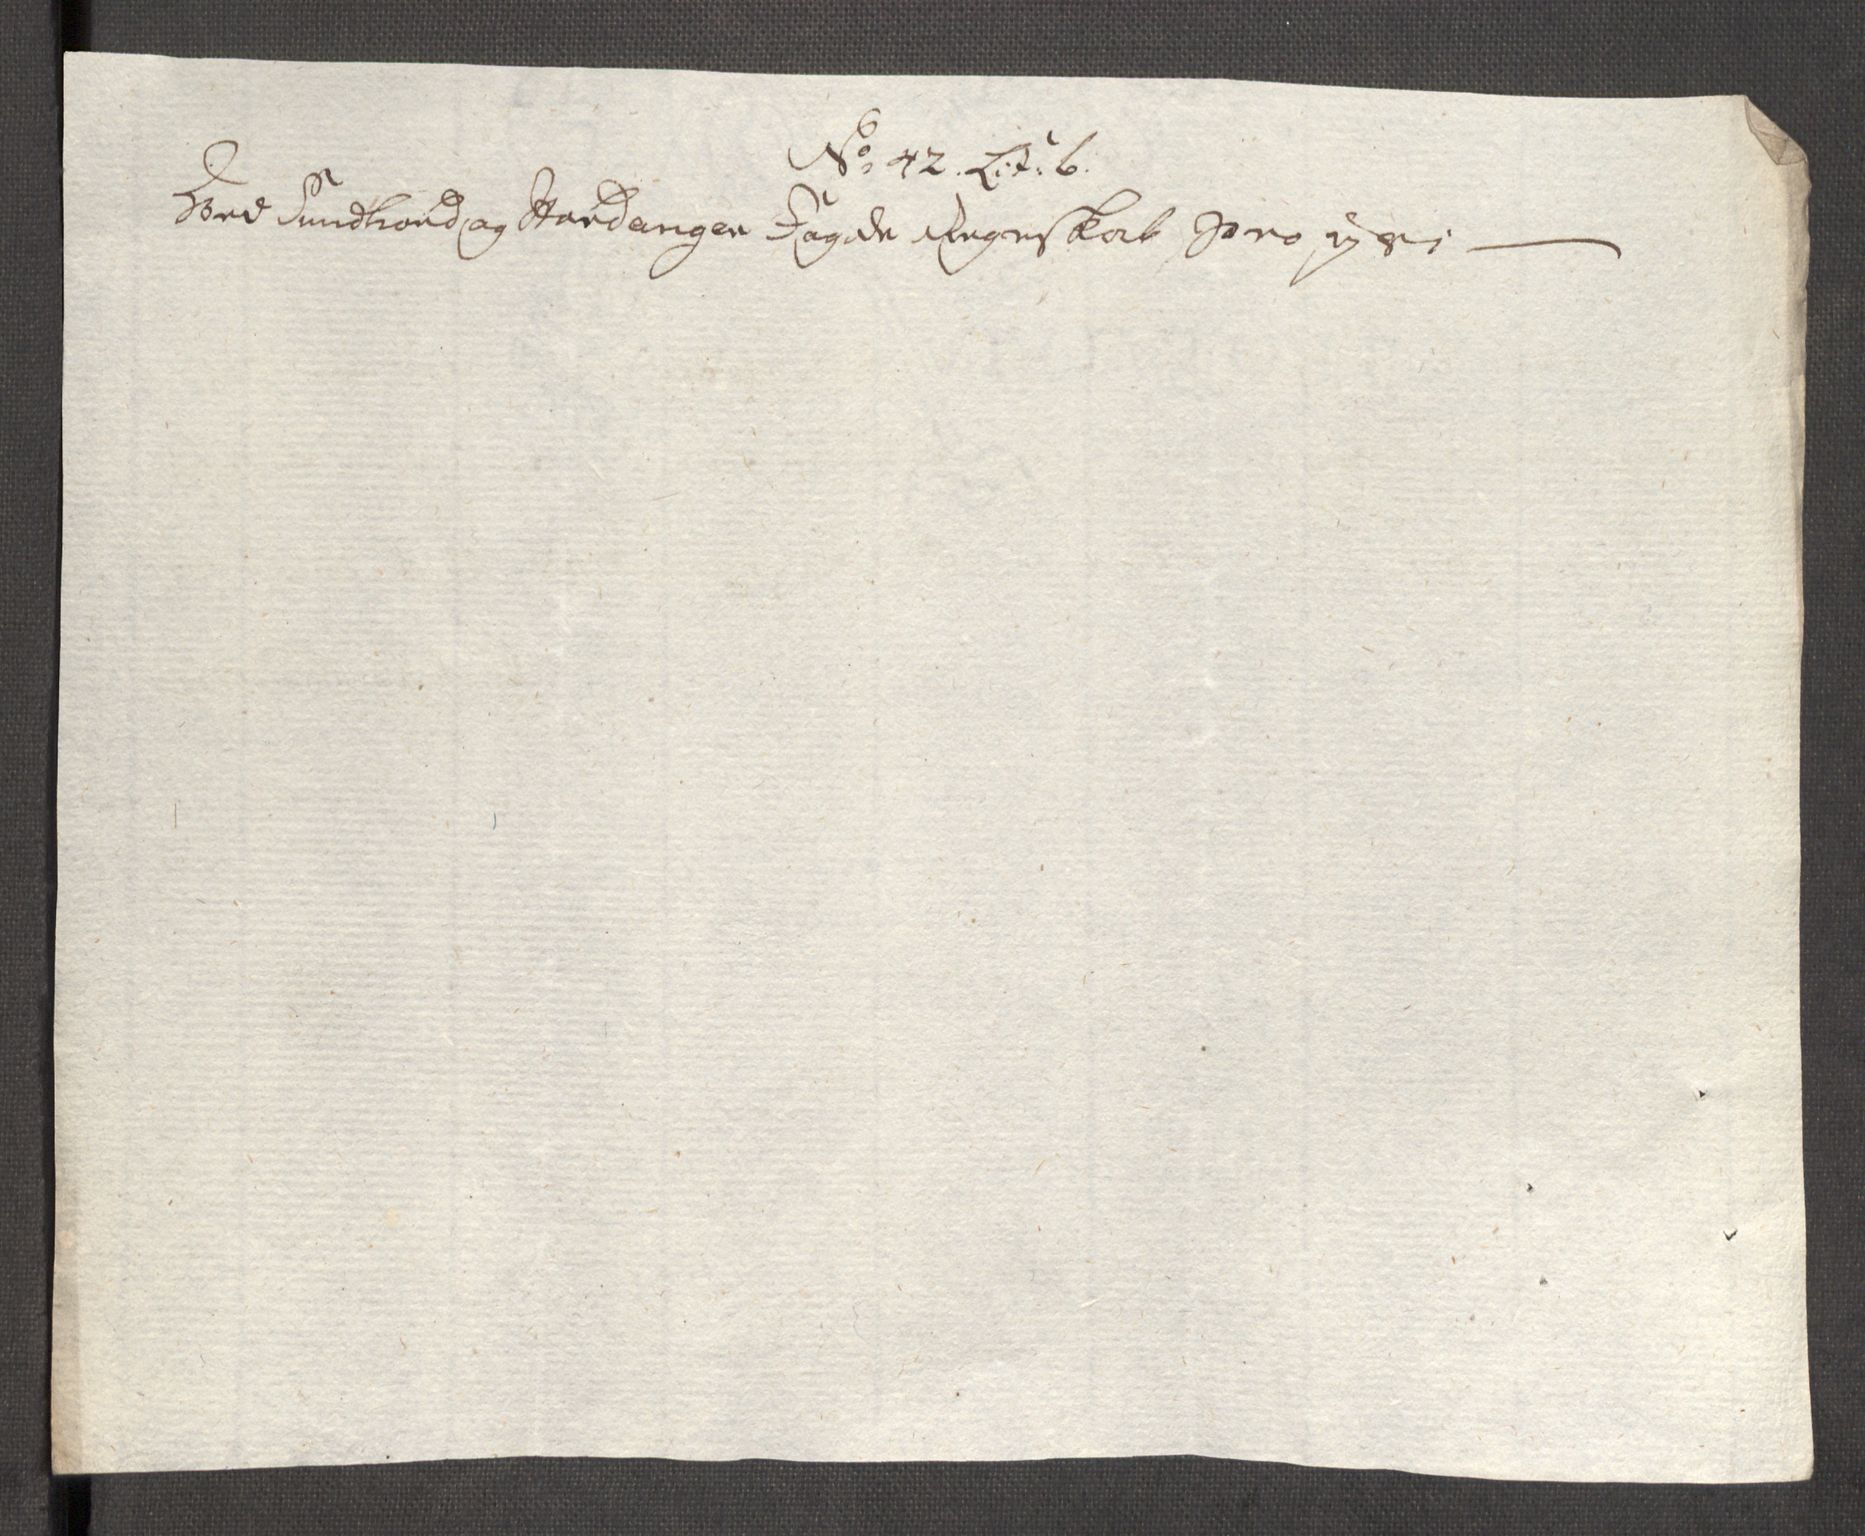 No: 42. Lit: b.
Ved Sundhord og Hardanger Fogde Regnskab pro 1781